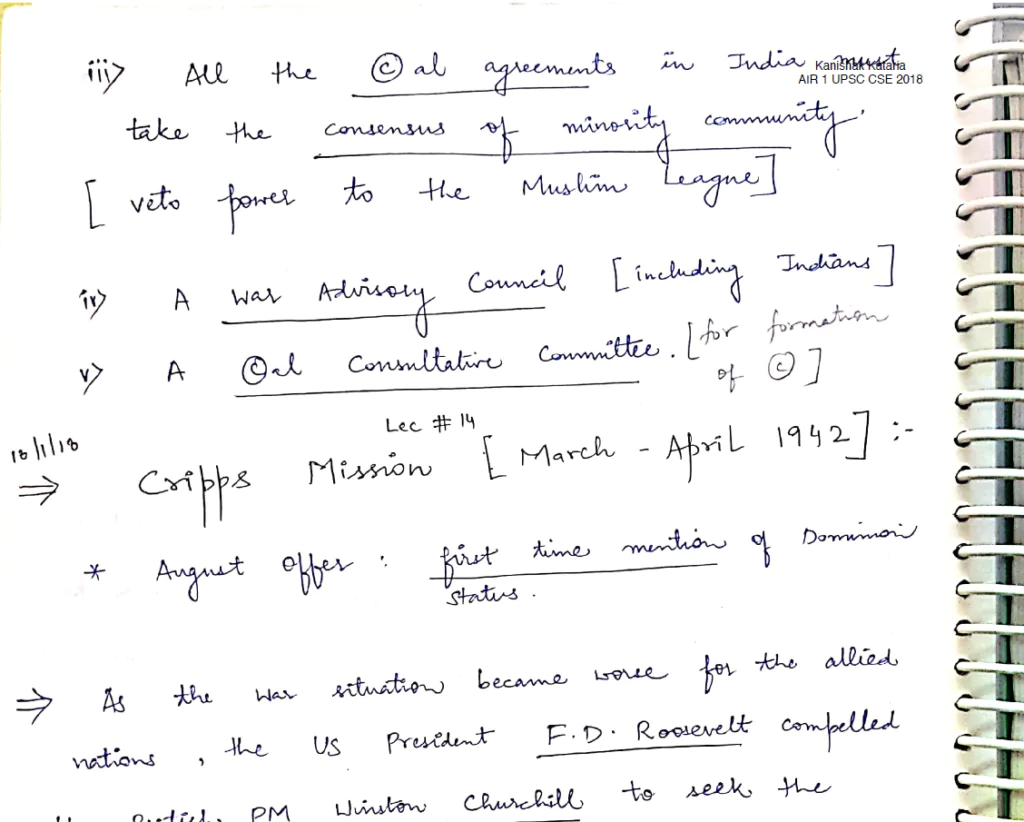 iii) All the ©al agreements in India must
Kanishak Kataria
AIR 1 UPSC CSE 2018
take the consensus of minority community.
[veto power to the Muslim League]
iv) A war Advisory Council [including Indians]
v) A ©al Consultative Committee. [for formation
of ©]
Lec # 14
18/1/18
⇒ Cripps Mission [March - April 1942] :-
* August offer : first time mention of Dominion
status.
⇒ As the war situation became worse for the allied
nations, the US President F.D. Roosevelt compelled
British PM Winston Churchill to seek the